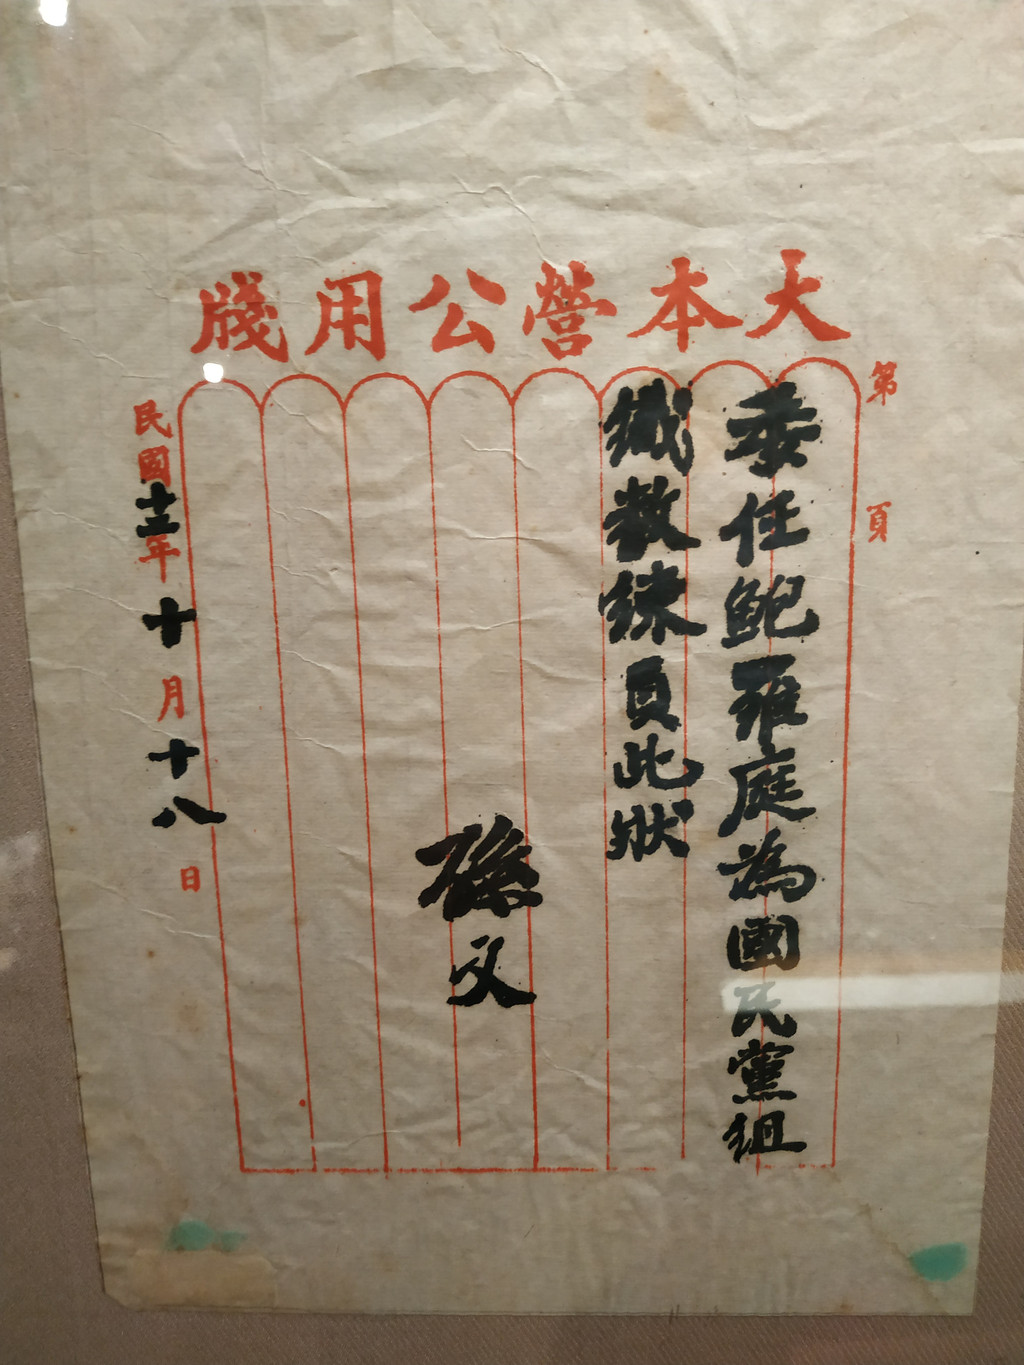 大本營公用牋
第 頁
委任鲍羅庭為國民黨組
織教練員此狀
孫文
民國十二年十月十八日